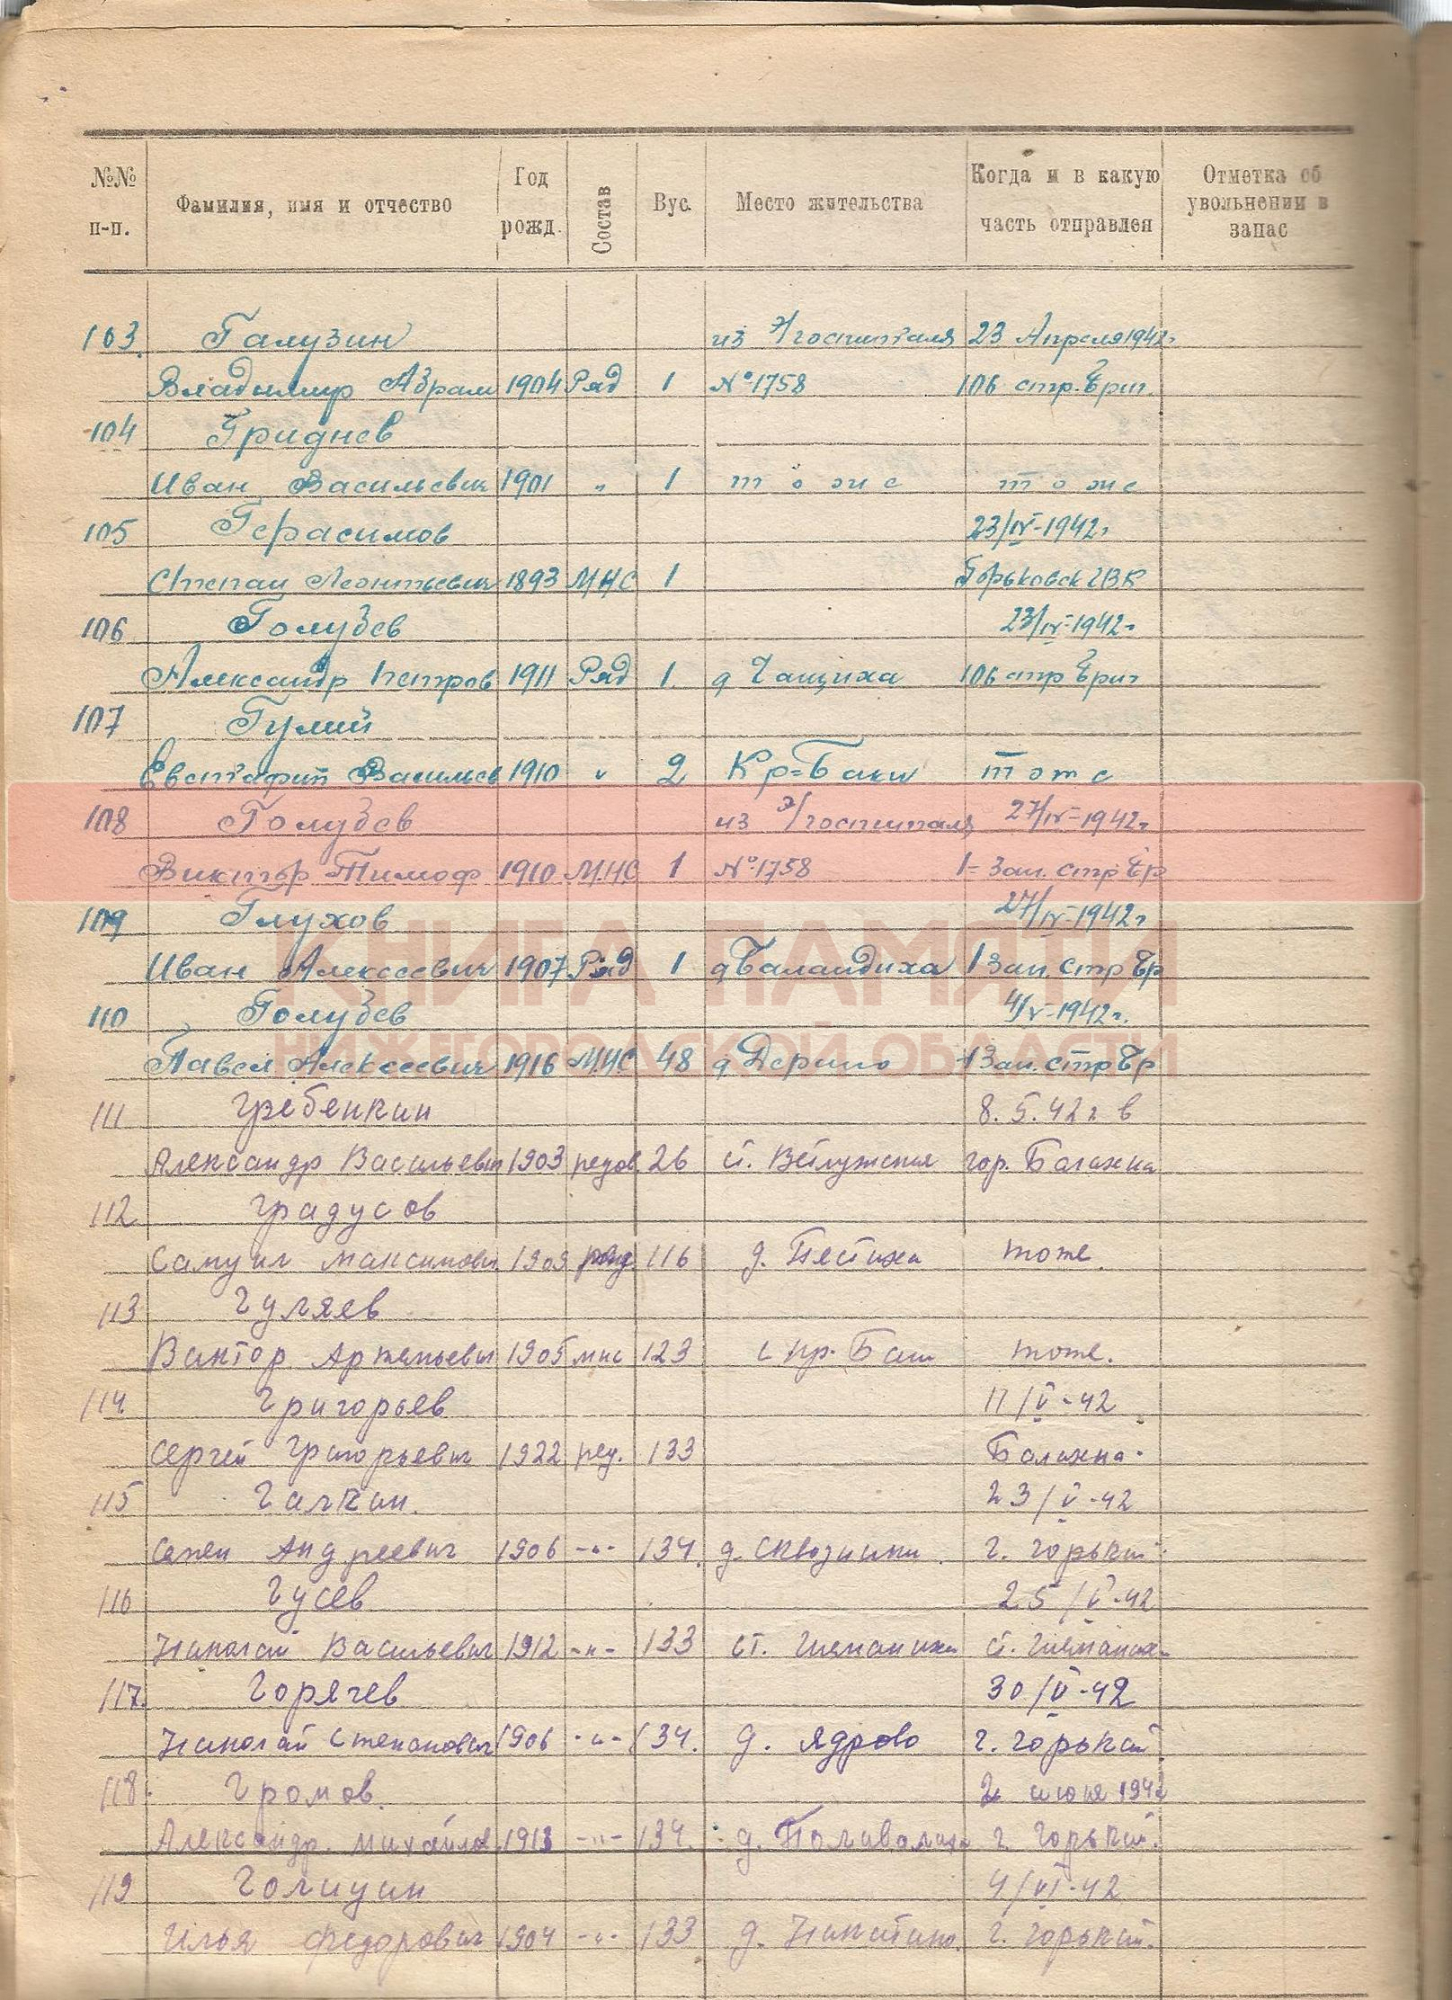 №№ п-п. Фамилия, имя и отчество Год рожд. Состав Вус. Место жительства Когда и в какую часть отправлен Отметка об увольнении в запас
103. Галузин из э/госпиталя 23 Апреля 1942г
Владимир Абрам 1904 Ряд 1 №1758 106 стр. бриг.
104 Гриднев
Иван Васильевич 1901 " 1 тоже тоже
105 Герасимов 23/IV-1942г
Степан Леонтьевич 1893 МНС 1 Горьковск ГВК
106 Голубев 23/IV-1942г
Александр Петров 1911 Ряд 1. д Чащиха 106 стр бриг
107 Гулий
Евстафий Васильев 1910 " 2 Кр-Баки тоже
108 Голубев из э/госпиталя 27/IV-1942г
Виктор Тимоф 1910 М.Н.С 1 №1758 1- Зап. стр бр
109 Глухов 27/IV-1942г
КНИГА ПАМЯТИ
Иван Алексеевич 1907 Ряд 1 д Баландиха 1 Зап. стр бр
110 Голубев 4/V-1942г.
НИЖЕГОРОДСКОЙ ОБЛАСТИ
Павел Алексеевич 1916 М.Н.С 48 д Дерино 1 Зап. стр бр
111 Гребенкин 8.5.42г в
Александр Васильевич 1903 рядов 26 ст. Ветлужская гор. Балахна
112 Градусов
Самуил Максимович 1909 ряд 116 д. Пестиха тоже.
113 Гуляев
Виктор Артемьевич 1905 мнс 123 с Кр. Баки тоже.
114 Григорьев 11/V-42
Сергей Григорьевич 1922 ряд. 133 Балахна.
115 Галкин. 23/V-42
Семен Андреевич 1906 -"- 134. д. г. Горький.
116 Гусев 25/V-42
Николай Васильевич 1912 -"- 133 ст. ст.
117. Горячев 30/V-42
Николай Степанович 1906 -"- 134. д. Ядрово г. Горький.
118. Громов. 2 июня 1942
Александр. Михайлов 1913 -"- 134. д. г. Горький.
119 Голицин 4/VI-42
Илья Федорович 1904 -"- 133 д. г. Горький.